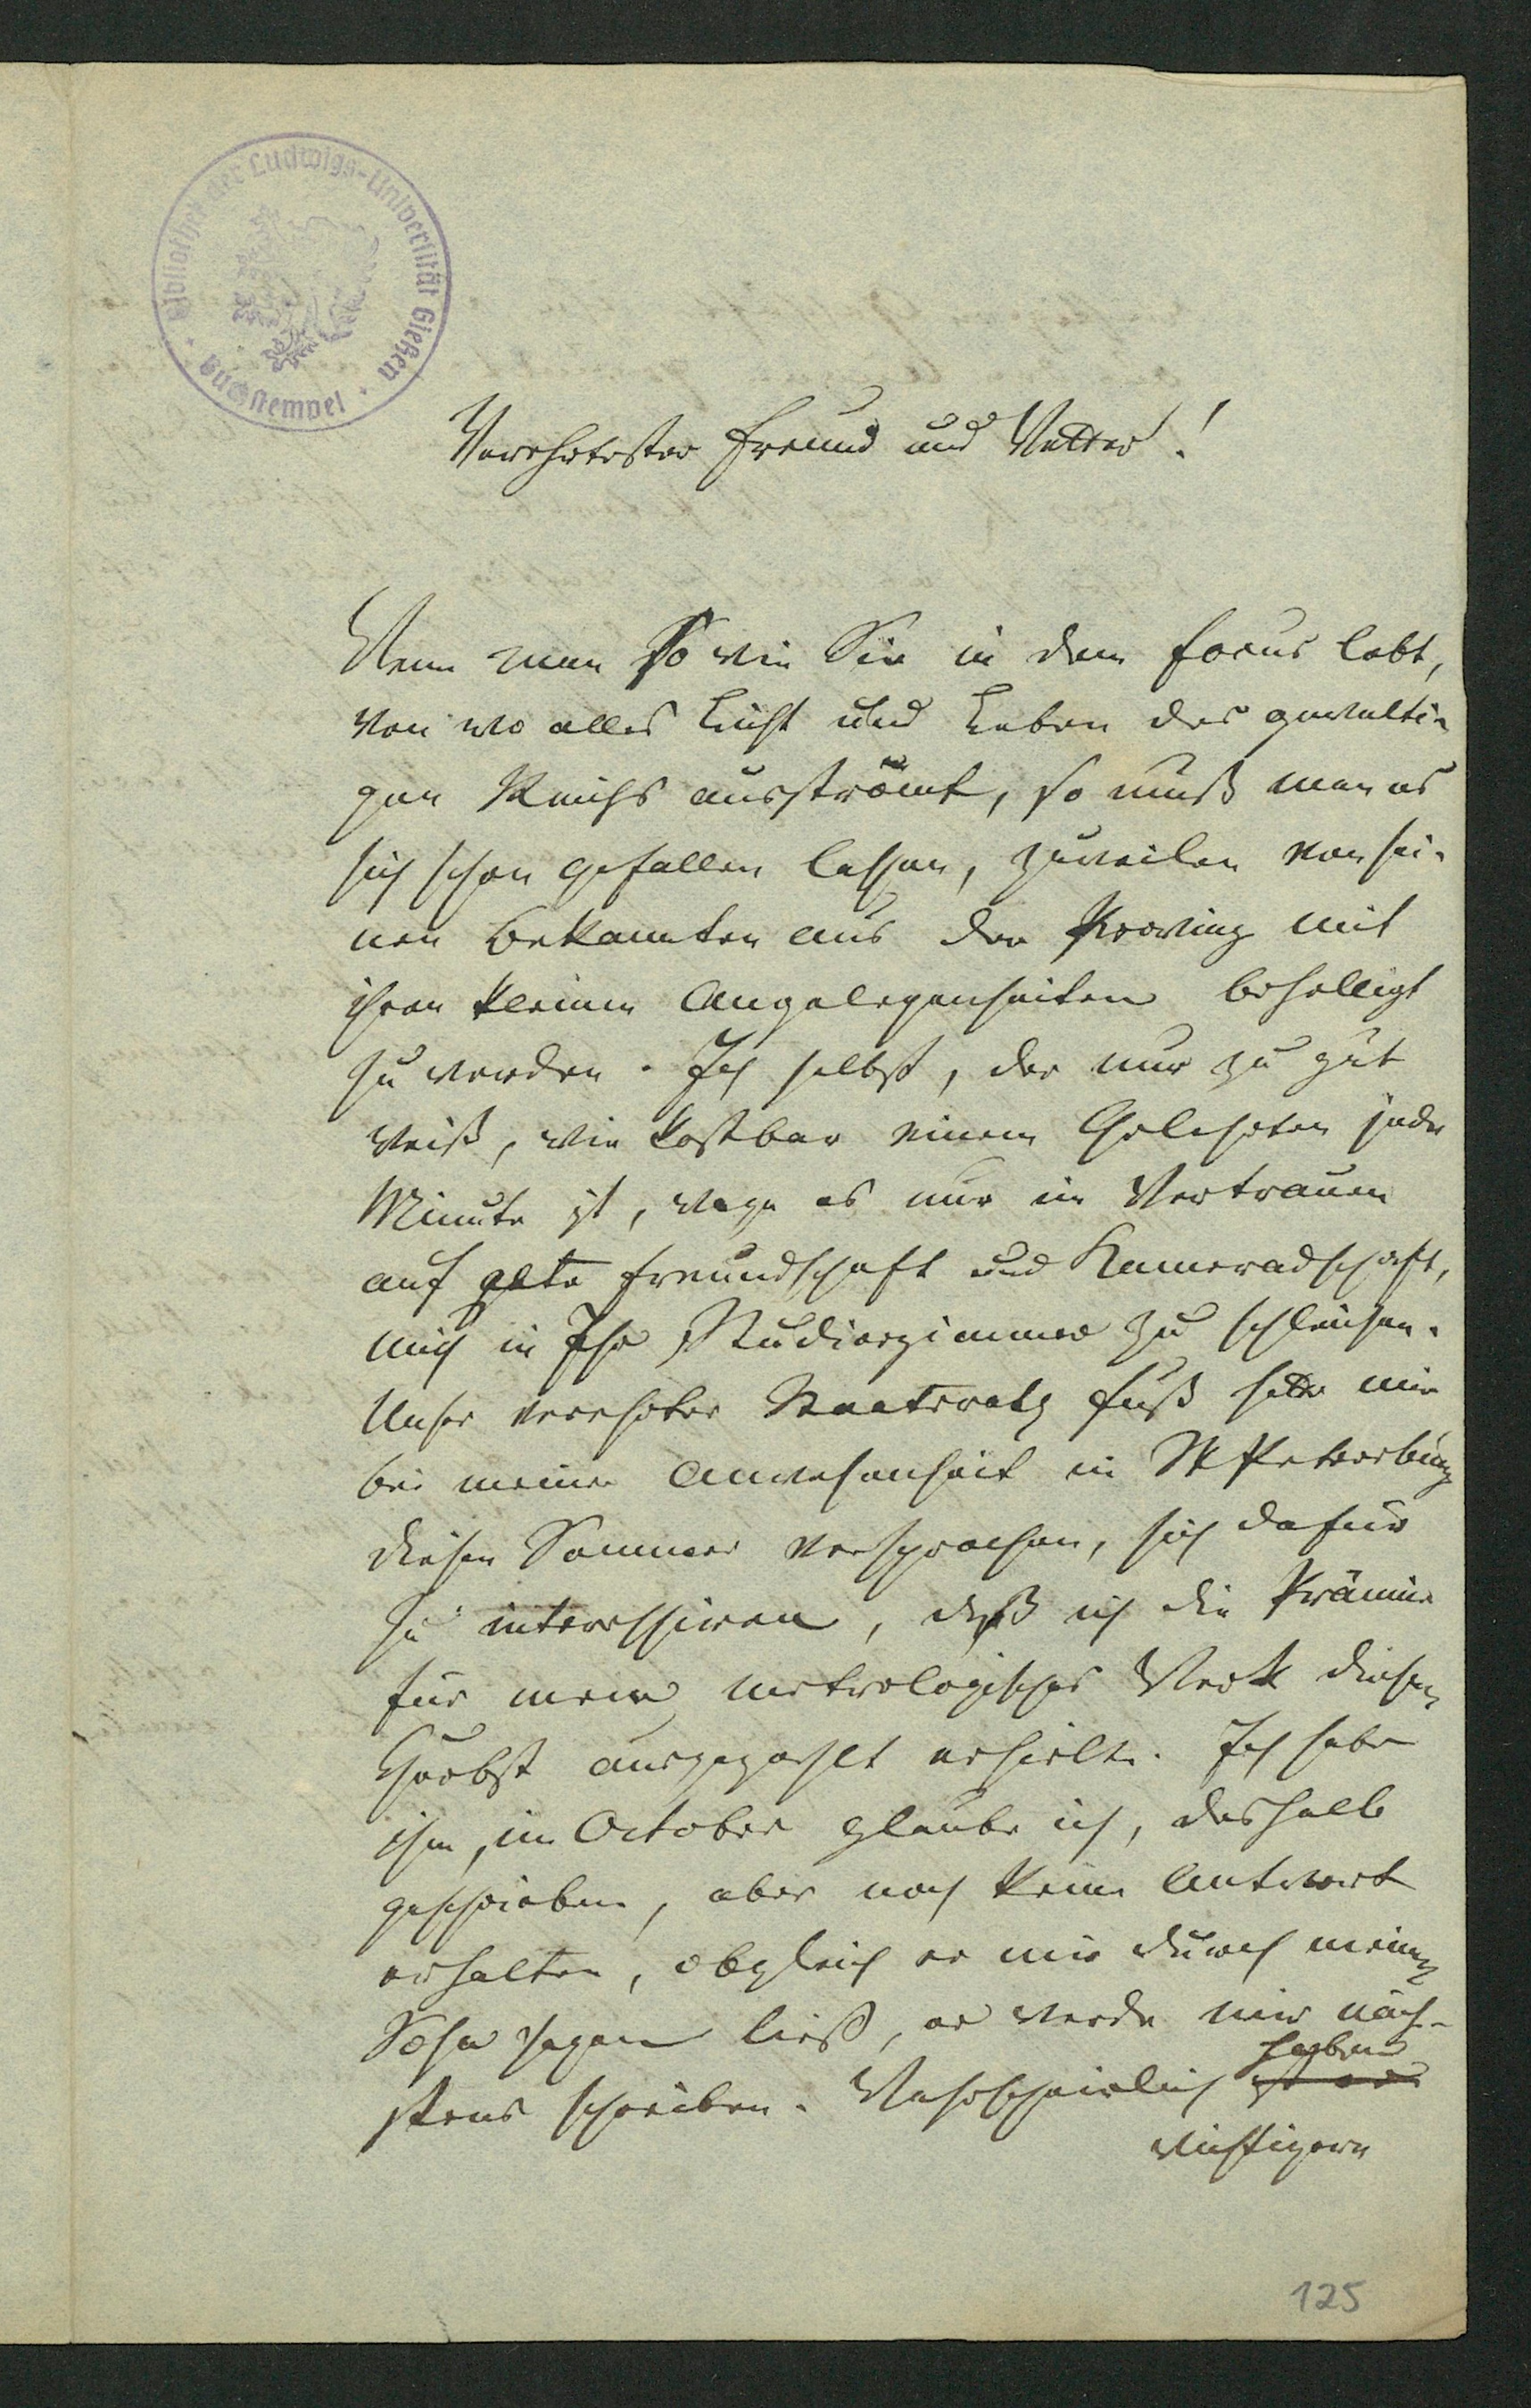 Bibliothek der Ludwigs-Universität Gießen
Buchstempel
Verehrtester Freund und Vetter!
Wenn man so wie Sie in dem Focus lebt,
von wo alles Licht und Leben des gewalti-
gen Reichs ausströmt, so muß man es
sich schon gefallen lassen, zuweilen von sei-
nen Bekannten aus der Provinz mit
ihren kleinen Angelegenheiten behelligt
zu werden. Ich selbst, der nur zu gut
weiß, wie kostbar einem Gelehrten jede
Minute ist, wage es nur im Vertrauen
auf alte Freundschaft und Kameradschaft,
mich in Ihr Studierzimmer zu schleichen.
Unser verehrter Staatsrath Fuß hatte mir
bei meiner Anwesenheit in St Petersburg
diesen Sommer versprochen, sich dafür
zu interessiren, daß ich die Prämie
für mein metrologisches Werk diesen
Herbst ausgezahlt erhielte. Ich habe
ihm, im October glaube ich, deshalb
geschrieben, aber noch keine Antwort
erhalten, obgleich er mir durch meinen
Sohn sagen ließ, er werde mir näch-
stens schreiben. Wahrscheinlich haben
wichtigere
125